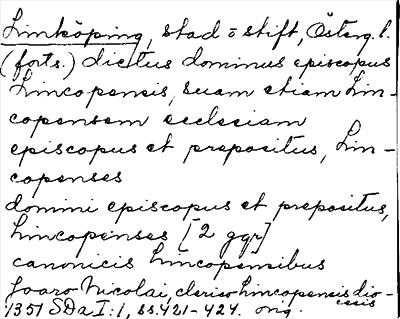 Linköping, stad o stift, Österg. l.
(forts.) dictus dominus episcopus
Lincopensis, suam etiam Lin-
copensem ecclesiam
episcopus et prepositus, Lin-
copenses
domini episcopus et prepositus,
Lincopenses [2 ggr]
canonicis Lincopensibus
Nicolai, clerico Lincopensis dio-
cesis
1351 SDa I:1, ss. 421-424. orig.